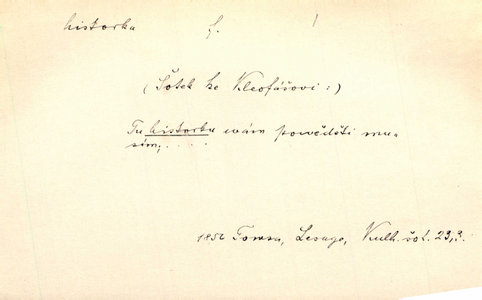 historka f. 1
(Šotek ke Kleofášovi:)
Tu historku wám powěděti mu-
sím; . . . .
1852 Tomsa, Lesage, Kulh. šot. 23,3.